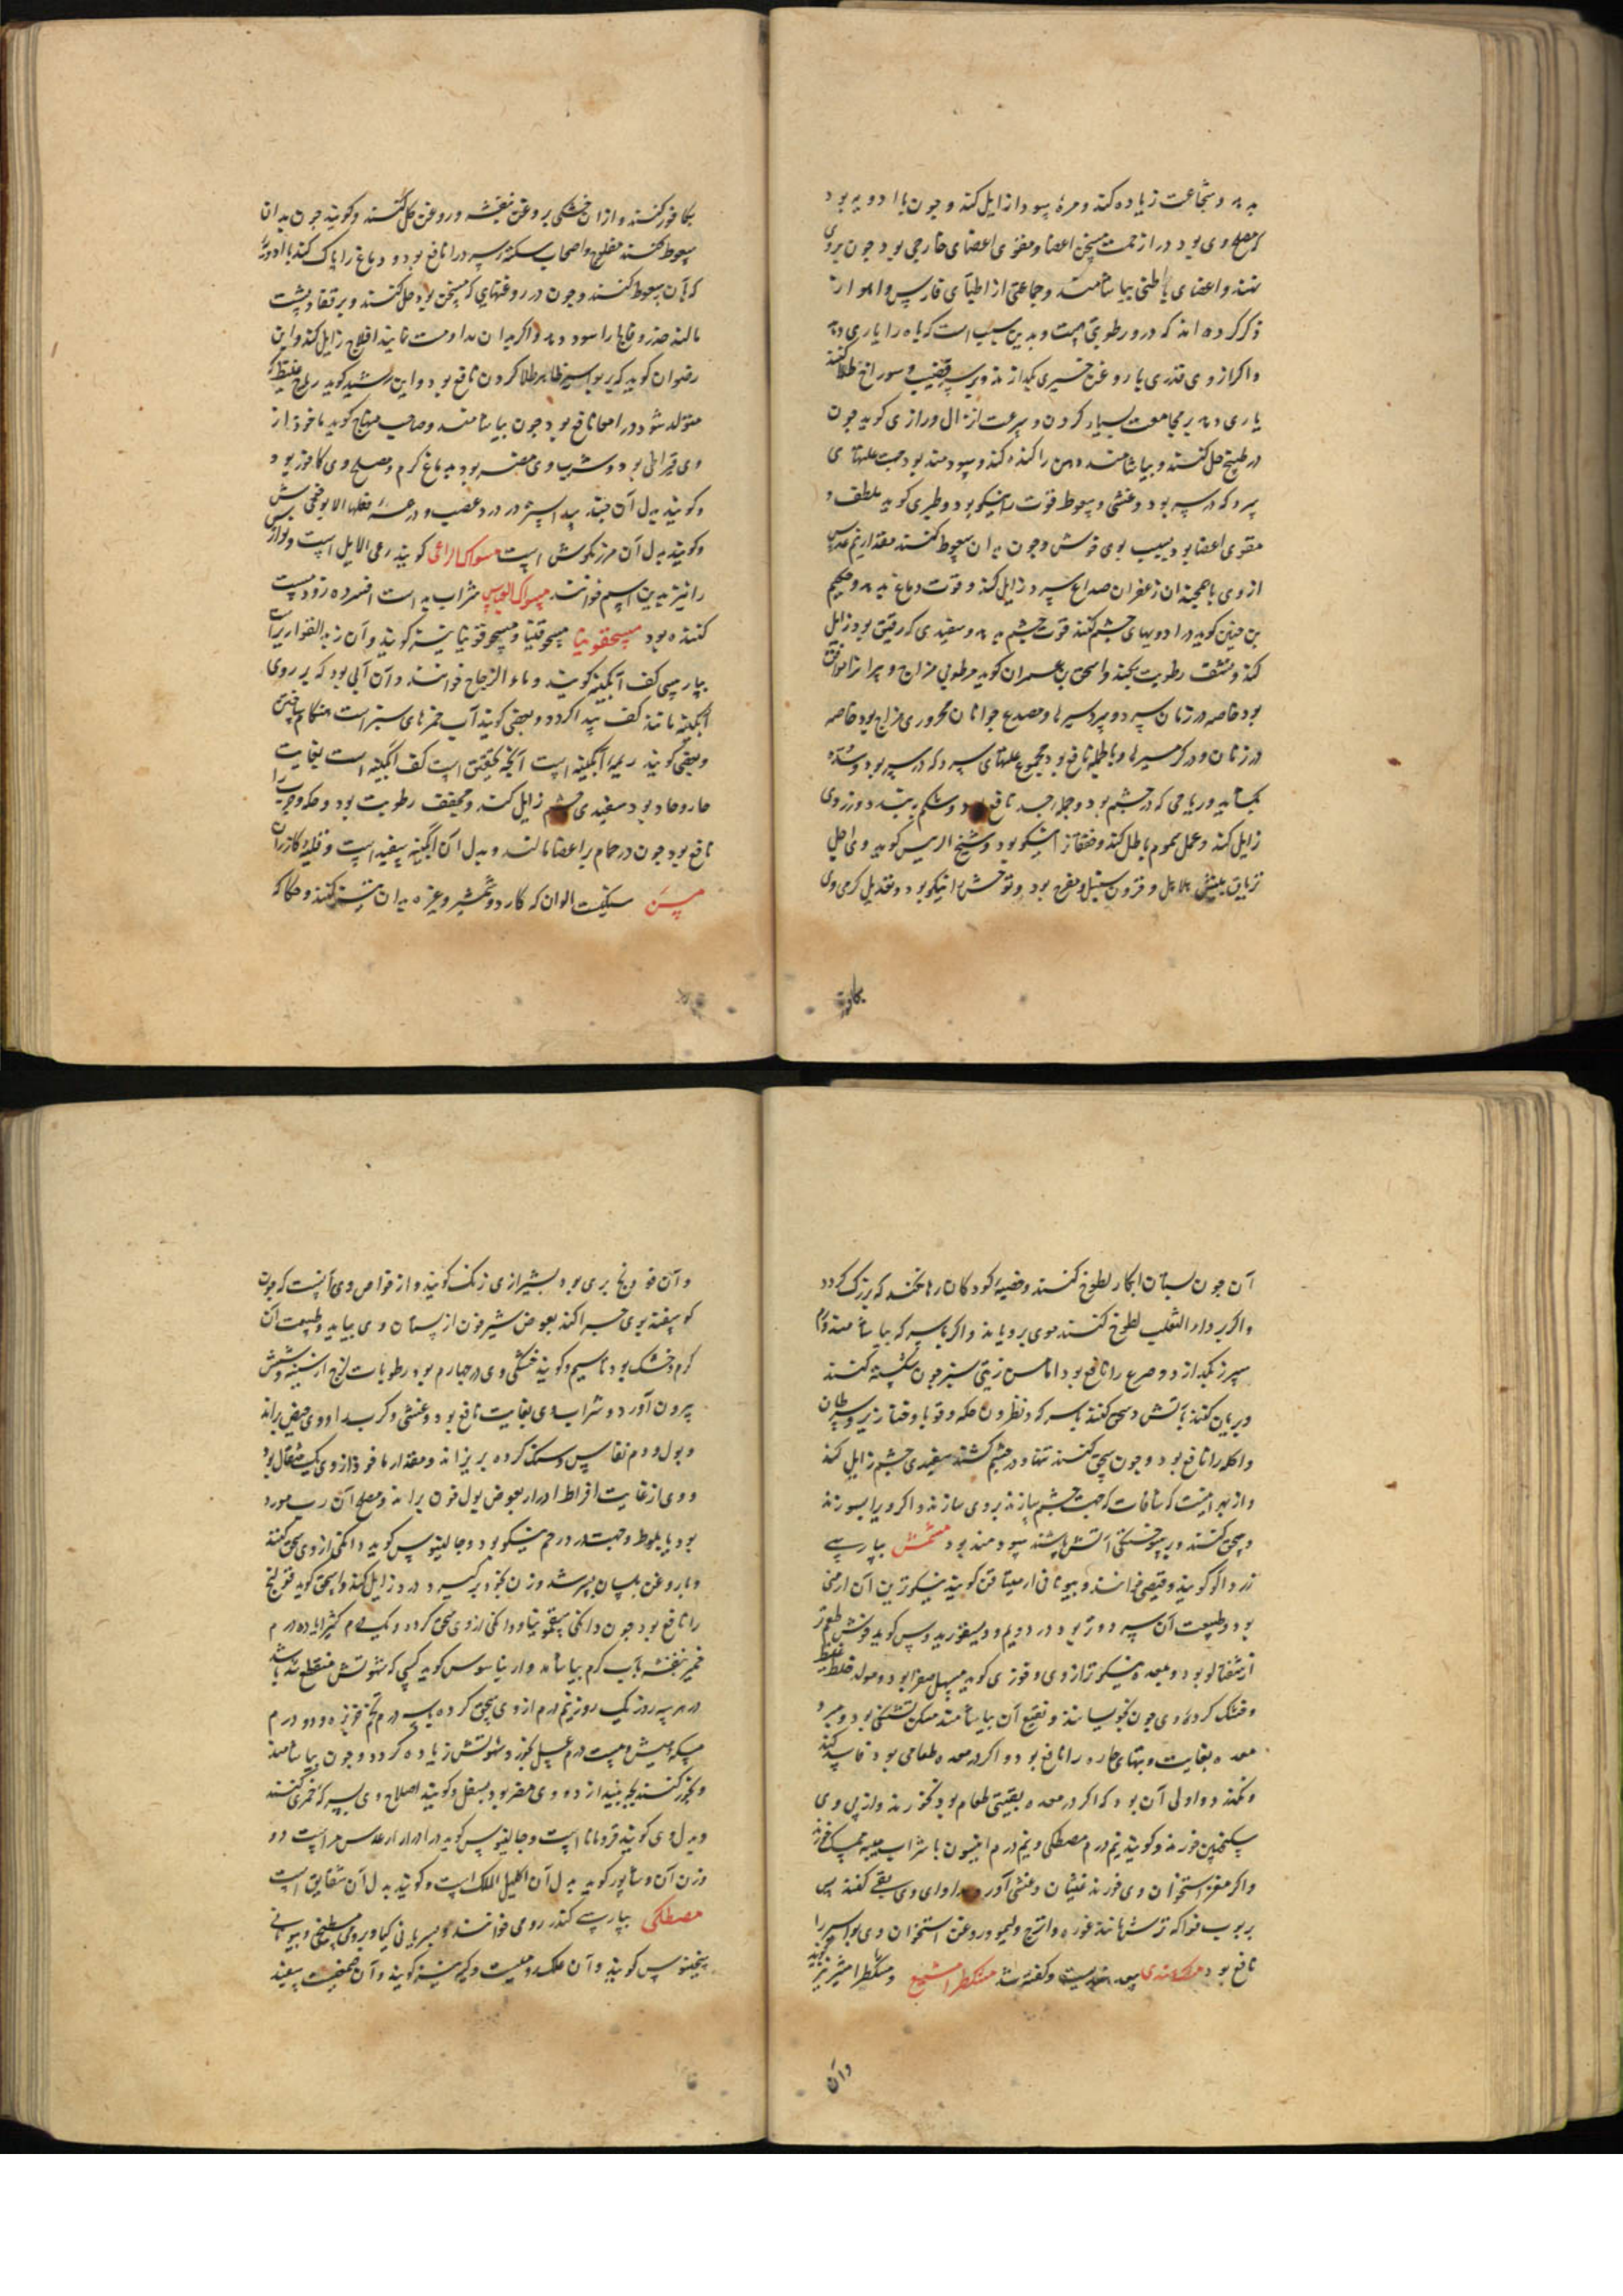 بدهد و شجاعت زیاده کند و مرهٔ سودا زایل کند و چون با ادویه بود
که مصلح وی بود دراز جهت مسخن اعضا و مقوی اعضای خارجی بود چون بروی
نهند و اعضای باطنی بیاشامند و جماعتی از اطبای فارس و اهواز
ذکر کرده اند که درو رطوبتی است و بدین سبب است که باه را یاری دهد
و اکر از وی قدری با روغن خیری بکدازند و بر سر قضیب و سوراخ طلا کنند
یاری دهد بر مجامعت بسیار کردن و سرعت انزال و رازی کوید چون
در طبیخ حل کنند و بیاشامند دهن را کنده کند و سودمند بود جهت علتهای
سرد که در سر بود و غشی و سقوط قوت را نیکو بود و طبری کوید ملطف و
مقوی اعضا بود بسبب بوی خوش و چون بدان سعوط کنند مقدار نیم عدس
از وی با همچندان زعفران صداع سرد زایل کند و قوت دماغ بدهد و حکیم
بن حنین کوید در ادویهای چشم کنند قوت چشم بدهد و سفیدی که رقیق بود زایل
کند و نشف رطوبت بکند و اسحق بن عمران کوید مرطوبی مزاج و پیرانرا موافق
بود خاصه در زمان سرد و سردسیرها و مصدع جوانان محروری مزاج بود خاصه
در زنان و در کرمسیرها و باطله نافع بود مجموع علتهای سرد که در سر بود و سده
بکشاید و ریاحی که در چشم بود و جمله جسد نافع بود و شکم ببندد و زردی
زایل کند و عمل سموم باطل کند و خفقان را نیکو بود و شیخ الرییس کوید وی اجل
تریاق بیش هلاهل و قرون سنبل و مفرح بود و توحش را نیکو بود و تعدیل کرمی وی
بکافور
بکافور کنند و از ان خشکی بروغن بنفشه و روغن کل کنند و کویند چون بدان
سعوط کنند مفلوج و اصحاب سکته سرد را نافع بود و دماغ را پاک کند با ادویه
که بآن سعوط کنند و چون در روغنهایی که مسخن بود حل کنند و بر قفا و پشت
مالند خدر و فالج را سود دهد و اکر بدان مداومت نمایند افلاج زایل کند و ابن
رضوان کوید که بر بواسیر ظاهر طلا کردن نافع بود و ابن رشید کوید ریاح غلیظ که
متولد شود در امعا نافع بود چون بیاشامند و صاحب منهاج کوید ماخوذ از
وی قیراطی بود و شرب وی مضر بود بدماغ کرم و مصلح وی کافور بود
و کویند بدل آن جند بیدستر در درد عصب و در همه فعلها الا بوی خوش
و کویند بدل آن مرزنکوش است مسواک الراعی کویند رعی الابل است و لوازس
را نیز بدین اسم خوانند مسواک العباس شراب به است افسرده زود مست
کننده بود مسحقونیا مسحوقنیا و مسحوقونیا نیز کویند و آن زبد القواریر است
بپارسی کف آبکینه کویند و ماء الزجاج خوانند و آن آبی بود که بر روی
آبکینه مانند کف پیدا کردد و بعضی کویند آب خمرهای سبز است هنکام پختن
و بعضی کویند ریمه آبکینه است آنچه محقق است کف آبکینه است بغایت
حار و حاد بود سفیدی چشم زایل کند و مجفف رطوبت بود و حکه و جرب را
نافع بود چون در حمام بر اعضا مالند و بدل آن آبکینه سفید است و قلیهٔ کازران
مسن سنکیست الوان که کارد و شمشیر و غیره بدان تیز کنند و حکاکه
آن چون بستان ابکار لطوخ کنند و خصیهٔ کودکان رها نکند که بزرک کردد
و اکر بر داء الثعلب لطوخ کنند موی برویاند و اکر با سرکه بیاشامند ورم
سپرز بکدازد و صرع را نافع بود اما مسن زیتی سبز چون شکسته کنند
و بریان کنند بآتش و سحق کنند با سرکه و نطرون حکه و قوبا و خنازیر و سرطان
و آکله را نافع بود و چون سحق کنند تنها و در چشم کشند سفیدی چشم زایل کند
و از بهر اینست که شافات که جهت چشم سازند بر وی سازند و اکر ویرا بسوزند
و سحق کنند و بر سوختکی آتش پاشند سودمند بود مشمش بپارسی
زردآلو کویند و قیصی خوانند و بیونانی ارمینیاقن کویند نیکوترین آن ارمنی
بود و طبیعت آن سرد و تر بود در دویم و دیسقوریدوس کوید خوش طعم تر
از شفتالو بود و بمعده نیکوتر از وی و فوزی کوید مسهل صفرا بود و مولد خلط غلیظ
و خشک کرده وی چون بخیسانند و نقیع آن بیاشامند مسکن تشنکی بود و مبرد
معده بغایت و تبهای حاره را نافع بود و اکر در معده طعامی بود فاسد کند
و نکند و اولی آن بود که اکر در معده بقیتی طعام بود نخورند و از پس وی
سکنجبین خورند و کویند نیم درم مصطکی و نیم درم انیسون با شراب میبه ممسک خورند
و اکر مغز استخوان وی خورند غثیان و غشی آورد و مداوای وی بقی کنند پس
بربوب فواکه ترش مانند غوره و اترج و لیمو و روغن استخوان وی بواسیر را
نافع بود مشک مندی سعد هندیست و کفته شد مشکطرامشیع و مشکطرامشیر نیز کویند
وآن
و آن فودنج بری بود بشیرازی زنک کویند و از خواص وی آنست که چون
کوسفند بوی چرا کند بعوض شیر خون از پستان وی بیاید و طبیعت آن
کرم و خشک بود تا سیم و کویند خشکی وی در چهارم بود رطوبات لزج از سینه و شش
بیرون آورد و شراب وی بغایت نافع بود و غشی و کرب را و وی حیض براند
و بول و دم نفاس و سنک کرده بریزاند و مقدار ماخوذ از وی یک مثقال بود
و وی از غایت افراط ادرار بعوض بول خون براند و مصلح آن رب مورد
بود یا بلوط و جهت درد رحم نیکو بود و جالینوس کوید دانکی از وی سحق کنند
و با روغن بلسان بسرشند و زن بخود برکیرد درد زایل کند و اسحق کوید قولنج
را نافع بود چون دانکی سقمونیا و دانکی از وی سحق کرده و یک درم کثیرا با ده درم
خمیر بنفشه بآب کرم بیاشامد و ارنیاسوس کوید کسی که شهوتش منقطع شده باشد
در هر سه روز یک روز نیم درم از وی سحق کرده با سه درم تخم خربزه و دو درم
مسکهٔ میش و بیست درم عسل بخورد شهوتش زیاده کردد و چون بیاشامند
و بخور کنند بچه بیندازد و وی مضر بود بسفل و کویند اصلاح وی بسرکهٔ خمری کنند
و بدل وی کویند قردمانا است و جالینوس کوید در ادرار عدس مر است دو
وزن آن و شاپور کوید بدل آن اکلیل الملک است و کویند بدل آن شقایق است
مصطکی بپارسی کندر رومی خوانند و بسریانی کیا و برومی مسطیخی و بیونانی
سخینوس کویند و آن علک رومیست و کیه نیز کویند و آن صمغیست سفید